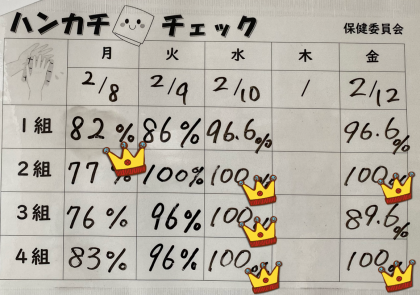 ハンカチチェック 保健委員会
月 火 水 木 金
2/8 2/9 2/10 / 2/12
1組 82% 86% 96.6% 96.6%
2組 77% 100% 100% 100%
3組 76% 96% 100% 89.6%
4組 83% 96% 100% 100%